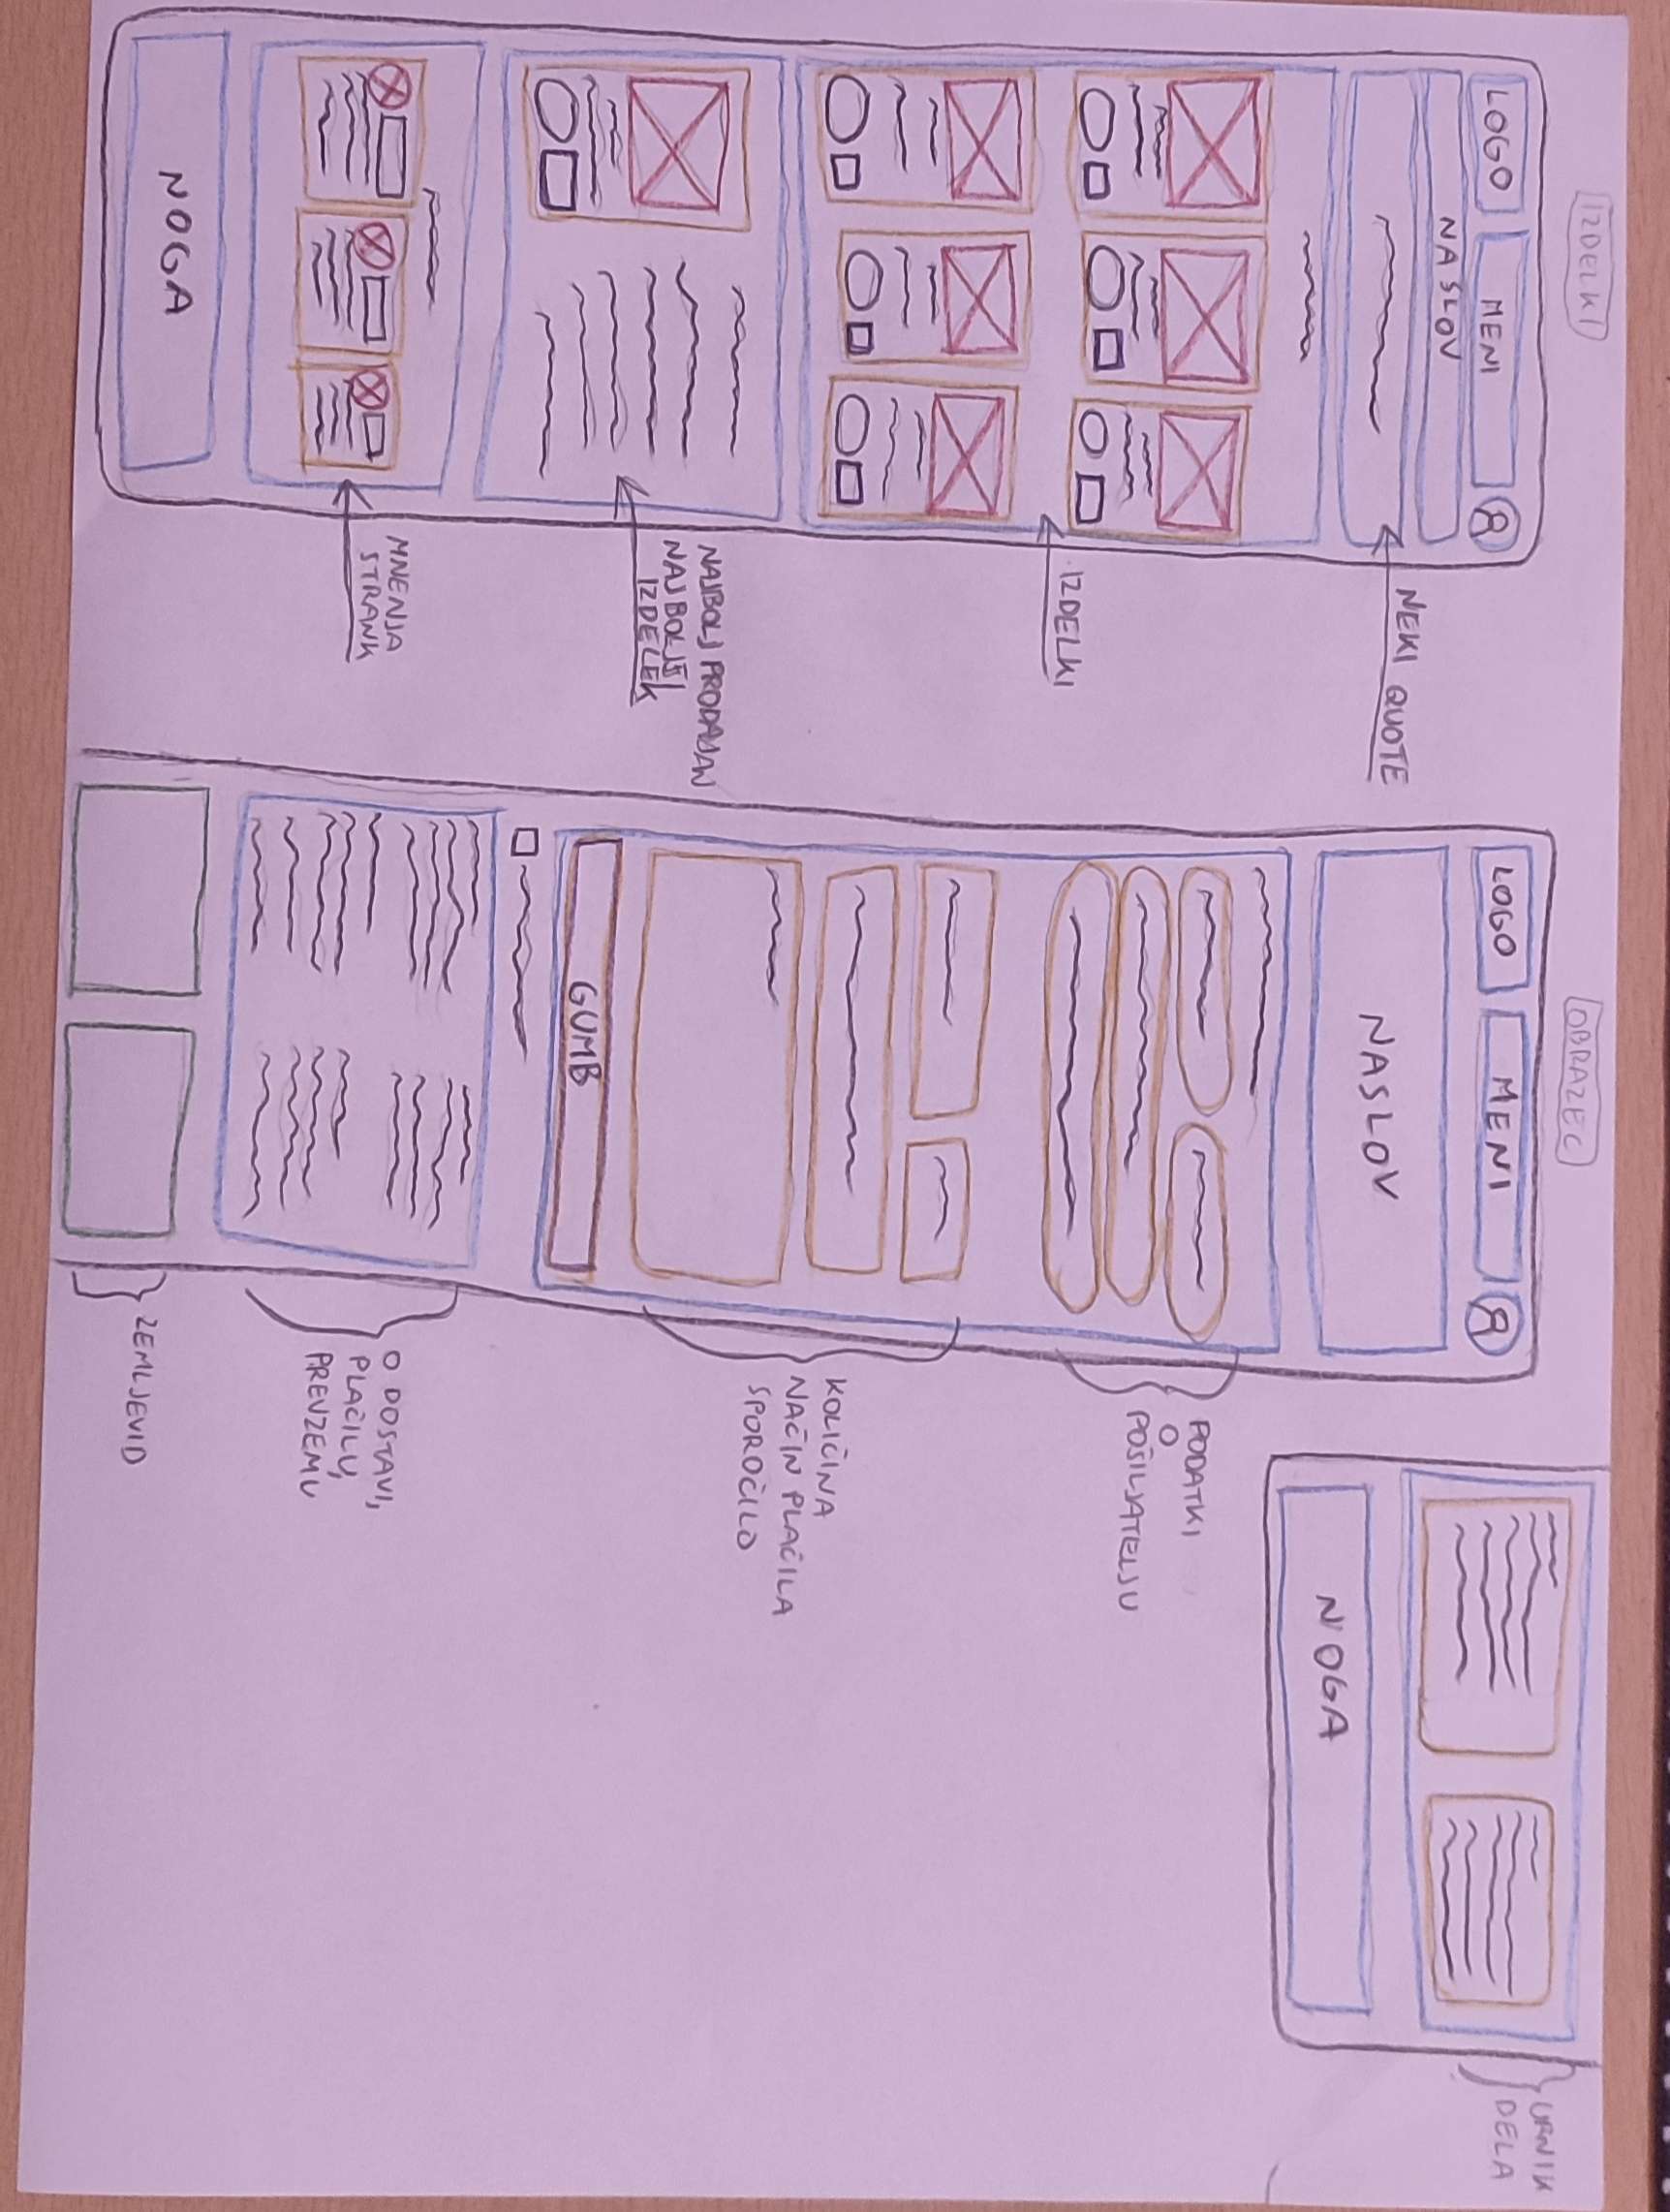 IZDELKI
LOGO
MENI
NASLOV
NEKI QUOTE
IZDELKI
NAJBOLJ PRODAJAN
NAJBOLJŠI
IZDELEK
MNENJA
STRANK
NOGA
OBRAZEC
LOGO
MENI
NASLOV
PODATKI
O
POŠILJATELJU
KOLIČINA
NAČIN PLAČILA
SPOROČILO
GUMB
O DOSTAVI,
PLAČILU,
PREVZEMU
ZEMLJEVID
URNIK
DELA
NOGA